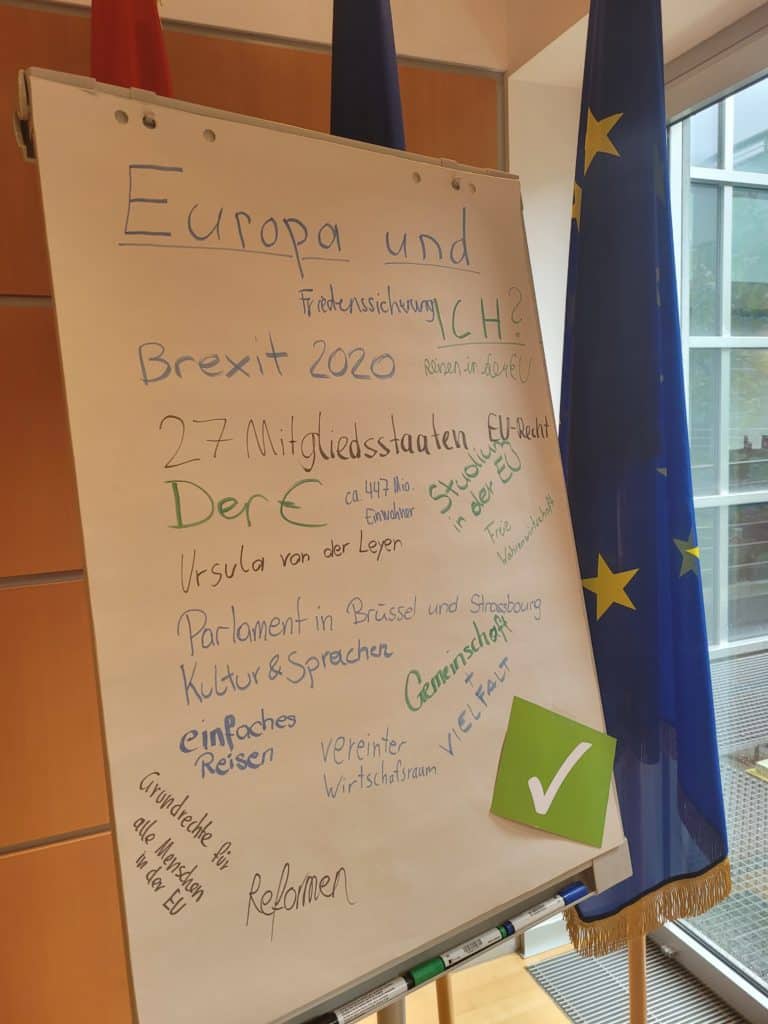 Europa und
ICH?
Friedenssicherung
Brexit 2020
Reisen in der EU
27 Mitgliedsstaaten
EU-Recht
Der €
ca. 447 Mio.
Einwohner
Studium
in der EU
Freie
Ursula von der Leyen
Parlament in Brüssel und Strassbourg
Kultur & Sprachen
Gemeinschaft
+
VIELFALT
einfaches
Reisen
vereinter
Wirtschafsraum
Grundrechte für
alle Menschen
in der EU
Reformen